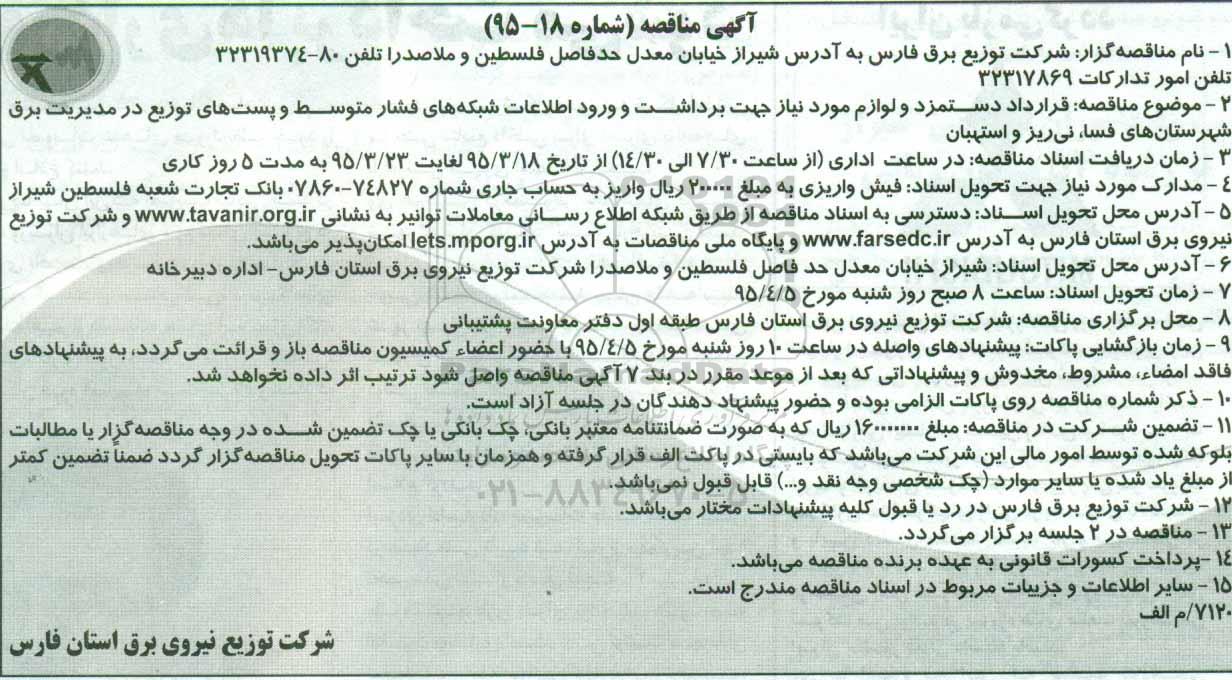 آگهی مناقصه (شماره ۱۸-۹۵)
۱- نام مناقصه‌گزار: شرکت توزیع برق فارس به آدرس شیراز خیابان معدل حدفاصل فلسطین و ملاصدرا تلفن ۸۰-۳۲۳۱۹۳۷۴
تلفن امور تدارکات ۳۲۳۱۷۸۶۹
۲- موضوع مناقصه: قرارداد دستمزد و لوازم مورد نیاز جهت برداشت و ورود اطلاعات شبکه‌های فشار متوسط و پست‌های توزیع در مدیریت برق
شهرستان‌های فسا، نی‌ریز و استهبان
۳- زمان دریافت اسناد مناقصه: در ساعت اداری (از ساعت ۷/۳۰ الی ۱۴/۳۰) از تاریخ ۹۵/۳/۱۸ لغایت ۹۵/۳/۲۳ به مدت ۵ روز کاری
۴- مدارک مورد نیاز جهت تحویل اسناد: فیش واریزی به مبلغ ۲۰۰۰۰۰ ریال واریز به حساب جاری شماره ۷۴۸۲۷-۰۷۸۶۰ بانک تجارت شعبه فلسطین شیراز
۵- آدرس محل تحویل اسناد: دسترسی به اسناد مناقصه از طریق شبکه اطلاع رسانی معاملات توانیر به نشانی www.tavanir.org.ir و شرکت توزیع
نیروی برق استان فارس به آدرس www.farsedc.ir و پایگاه ملی مناقصات به آدرس Iets.mporg.ir امکان‌پذیر می‌باشد.
۶- آدرس محل تحویل اسناد: شیراز خیابان معدل حد فاصل فلسطین و ملاصدرا شرکت توزیع نیروی برق استان فارس- اداره دبیرخانه
۷- زمان تحویل اسناد: ساعت ۸ صبح روز شنبه مورخ ۹۵/٤/۵
۸- محل برگزاری مناقصه: شرکت توزیع نیروی برق استان فارس طبقه اول دفتر معاونت پشتیبانی
۹- زمان بازگشایی پاکات: پیشنهادهای واصله در ساعت ۱۰ روز شنبه مورخ ۹۵/٤/۵ با حضور اعضاء کمیسیون مناقصه باز و قرائت می‌گردد، به پیشنهادهای
فاقد امضاء، مشروط، مخدوش و پیشنهاداتی که بعد از موعد مقرر در بند ۷ آگهی مناقصه واصل شود ترتیب اثر داده نخواهد شد.
۱۰- ذکر شماره مناقصه روی پاکات الزامی بوده و حضور پیشنهاد دهندگان در جلسه آزاد است.
۱۱- تضمین شرکت در مناقصه: مبلغ ۱۶۰۰۰۰۰۰۰ ریال که به صورت ضمانتنامه معتبر بانکی، چک بانکی یا چک تضمین شده در وجه مناقصه‌گزار یا مطالبات
بلوکه شده توسط امور مالی این شرکت می‌باشد که بایستی در پاکت الف قرار گرفته و همزمان با سایر پاکات تحویل مناقصه‌گزار گردد ضمناً تضمین کمتر
از مبلغ یاد شده یا سایر موارد (چک شخصی وجه نقد و...) قابل قبول نمی‌باشد.
۱۲- شرکت توزیع برق فارس در رد یا قبول کلیه پیشنهادات مختار می‌باشد.
۱۳- مناقصه در ۲ جلسه برگزار می‌گردد.
۱۴-پرداخت کسورات قانونی به عهده برنده مناقصه می‌باشد.
۱۵- سایر اطلاعات و جزییات مربوط در اسناد مناقصه مندرج است.
۷۱۲۰/م الف
شرکت توزیع نیروی برق استان فارس